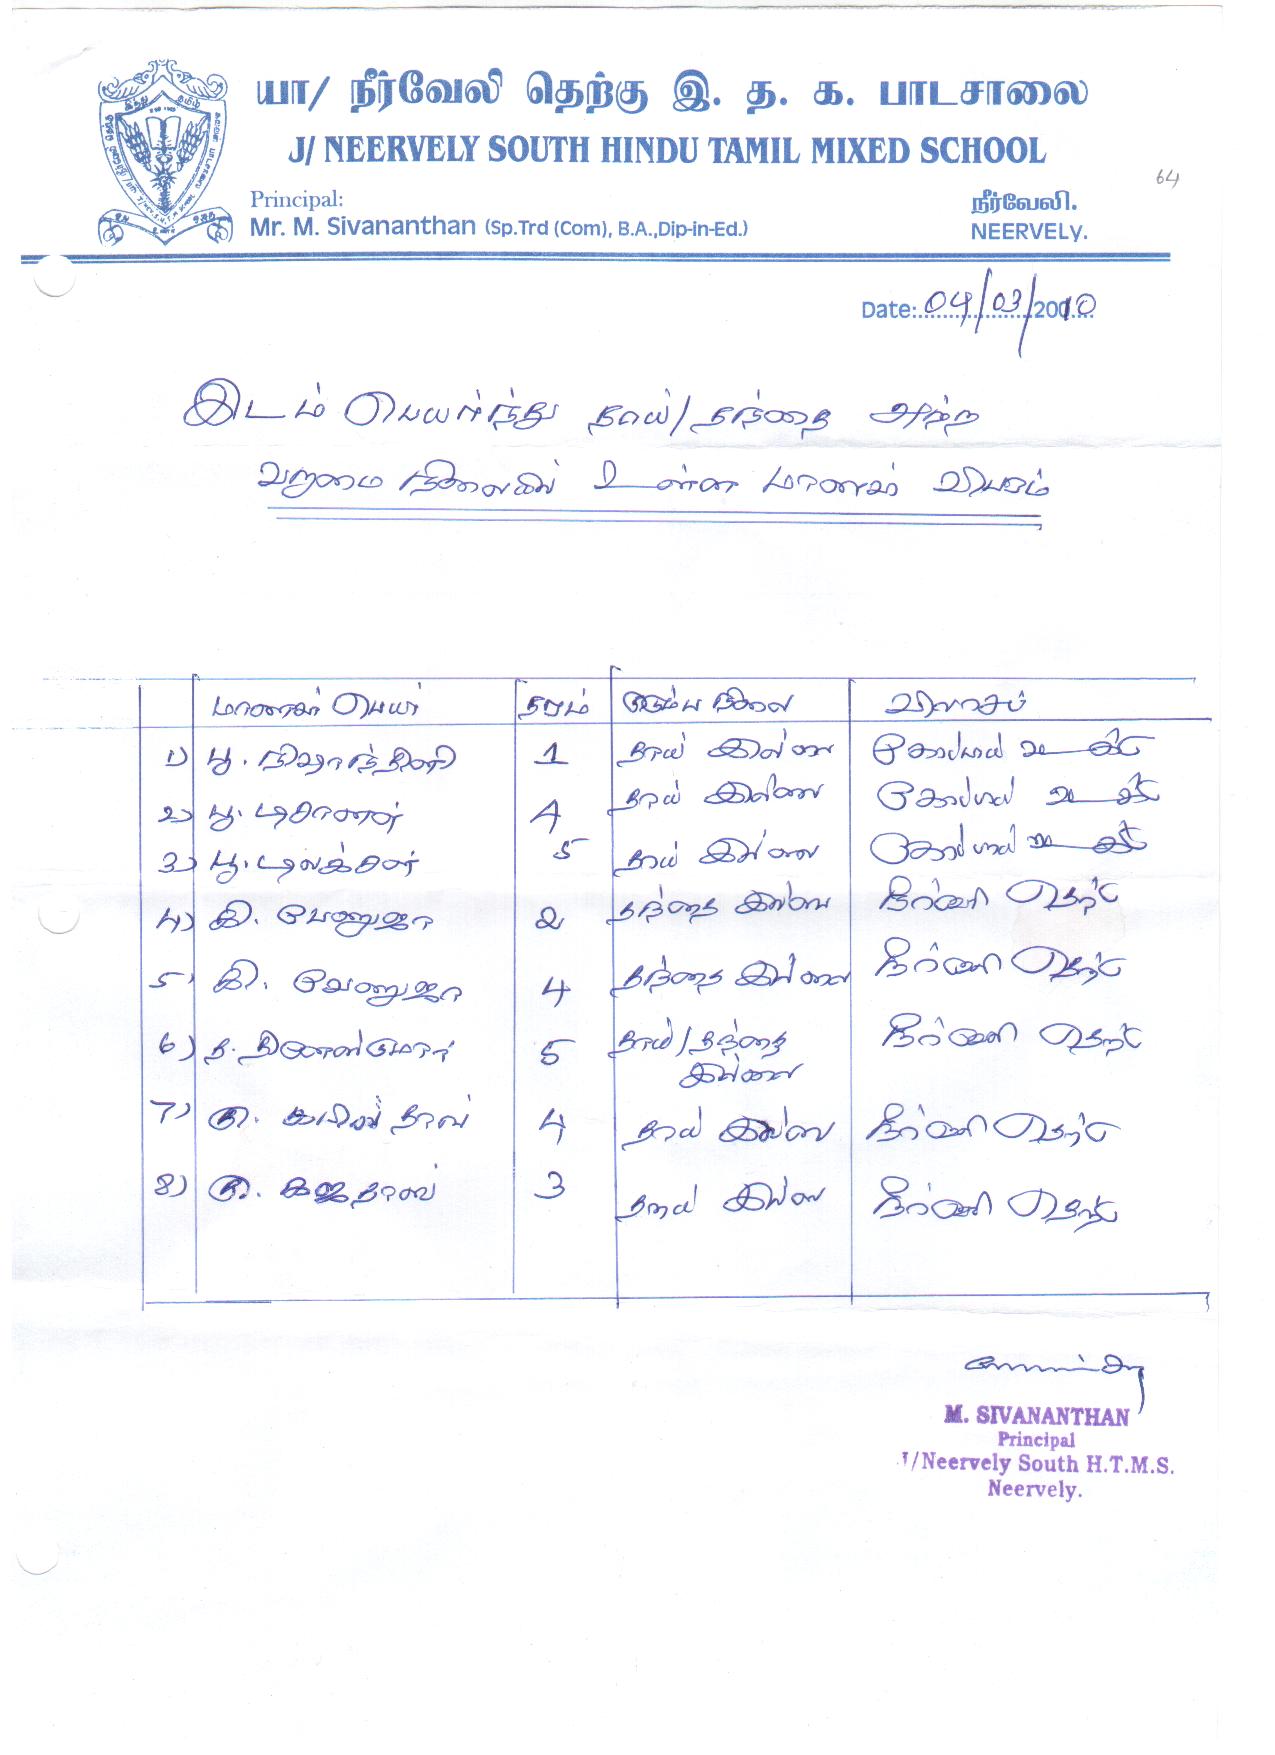 யா/ நீர்வேலி தெற்கு இ. த. க. பாடசாலை
J/ NEERVELY SOUTH HINDU TAMIL MIXED SCHOOL
64
Principal:
நீர்வேலி.
Mr. M. Sivananthan (Sp.Trd (Com), B.A.,Dip-in-Ed.)
NEERVELy.
Date: 04/03/2010
இடம் பெயர்ந்து தாய்/தந்தை அற்ற
வறுமை நிலையில் உள்ள மாணவர் விபரம்
மாணவர் பெயர் தரம் குடும்ப நிலை விலாசம்
1) பூ. நிஷாந்தினி 1 தாய் இல்லை கோப்பாய்
2) பூ. 4 தாய் இல்லை கோப்பாய்
3) பூ. 5 தாய் இல்லை கோப்பாய்
4) இ. வேணுஜா 2 தந்தை இல்லை நீர்வேலி தெற்கு
5) இ. வேணுஜா 4 தந்தை இல்லை நீர்வேலி தெற்கு
6) த. 5 தாய்/தந்தை இல்லை நீர்வேலி தெற்கு
7) 4 தாய் இல்லை நீர்வேலி தெற்கு
8) 3 தாய் இல்லை நீர்வேலி தெற்கு
M. SIVANANTHAN
Principal
J/Neervely South H.T.M.S.
Neervely.